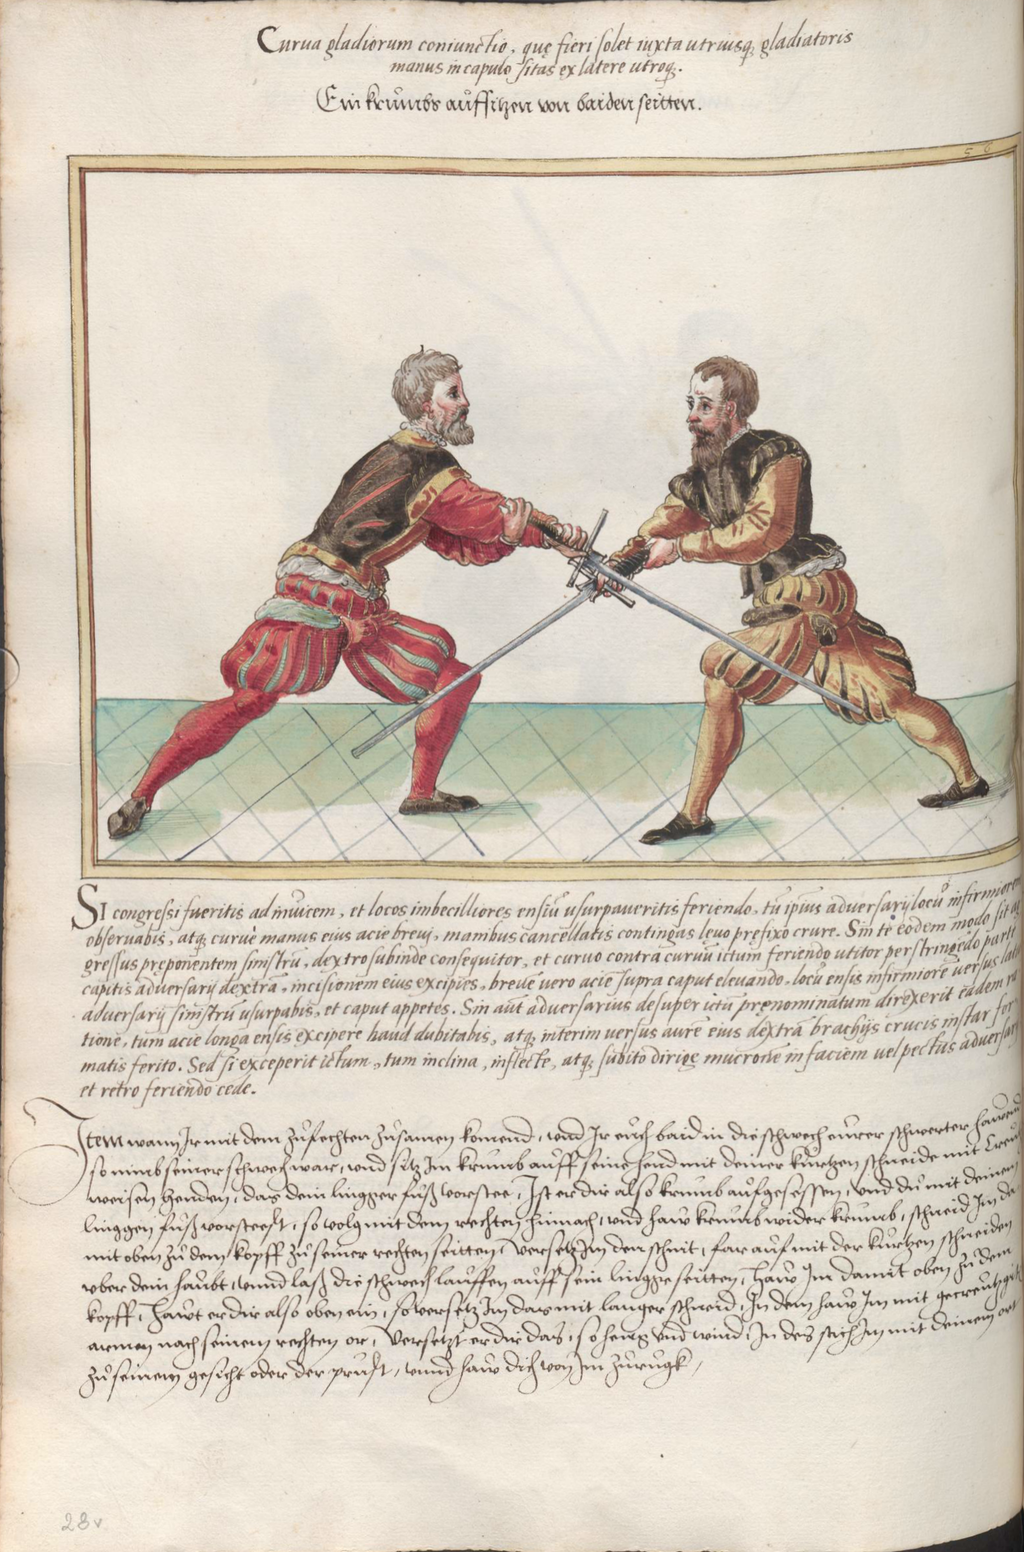 Curua gladiorum coniunctio, quę fieri solet iuxta utriusq; gladiatoris
manus in capulo sitas ex latere utroq;.
Ein krumbs auffsitzen von baiden seitten.
56
SI congressi fueritis ad inuicem, et locos imbecilliores ensiū usurpaueritis feriendo, tū ipsius aduersarij locū infirmiorem
obseruabis, atq; curuè manus eius acie breui, manibus cancellatis contingas leuo prefixo crure. Sin te eodem modo sit ag
gressus preponentem sinistrū, dextro subinde consequitor, et curuo contra curuū ictum feriendo utitor perstringēdo parti
capitis aduersarij dextra, incisionem eius excipies, breue vero acie supra caput eleuando, locū ensis infirmiore versus latus
aduersarij sinistrū usurpabis, et caput appetes. Sin aūt aduersarius desuper ictū prenominatum direxerit eadem ra
tione, tum acie longa ensis excipere haud dubitabis, atq; interim versus aure eius dextrā brachijs crucis instar for
matis ferito. Sed si exceperit ictum, tum inclina, inflecte, atq; subito dirige mucrone in faciem uel pectus aduersarij
et retro feriendo cede.
Item wann Ir mit dem zufechten zusamen komend, und Ir euch baid in die schwech eurer schwerter hawend
so nimb seiner schwech war, und sitz Im krumb auff seine hend mit deiner kurtzen schneide mit Creutz
weisen henden, das dein lingger fuß vorstee, Ist er dir also krumb aufgesessen, und du mit deinem
linggen fuß vorsteest, so volg mit dem rechten hinnach, und haw krumb wider krumb, schneid Im da
mit oben zu dem kopff zu seiner rechten seitten, Versetz Im den schnit, far auf mit der kurtzen schneiden
vber dein haubt, unnd laß die schwech lauffen auff sein lingge seitten, haw Im damit oben zu dem
kopff, hawt er dir also oben ein, so versetz Im das mit langer schneid, In dem haw Im mit gecreutzgten
armen nach seinem rechten or, Versetzt er dir das, so heng und wind, In des stich Im mit deinem ort
zu seinem gesicht oder der prust, unnd haw dich von Im zurugk,
28v